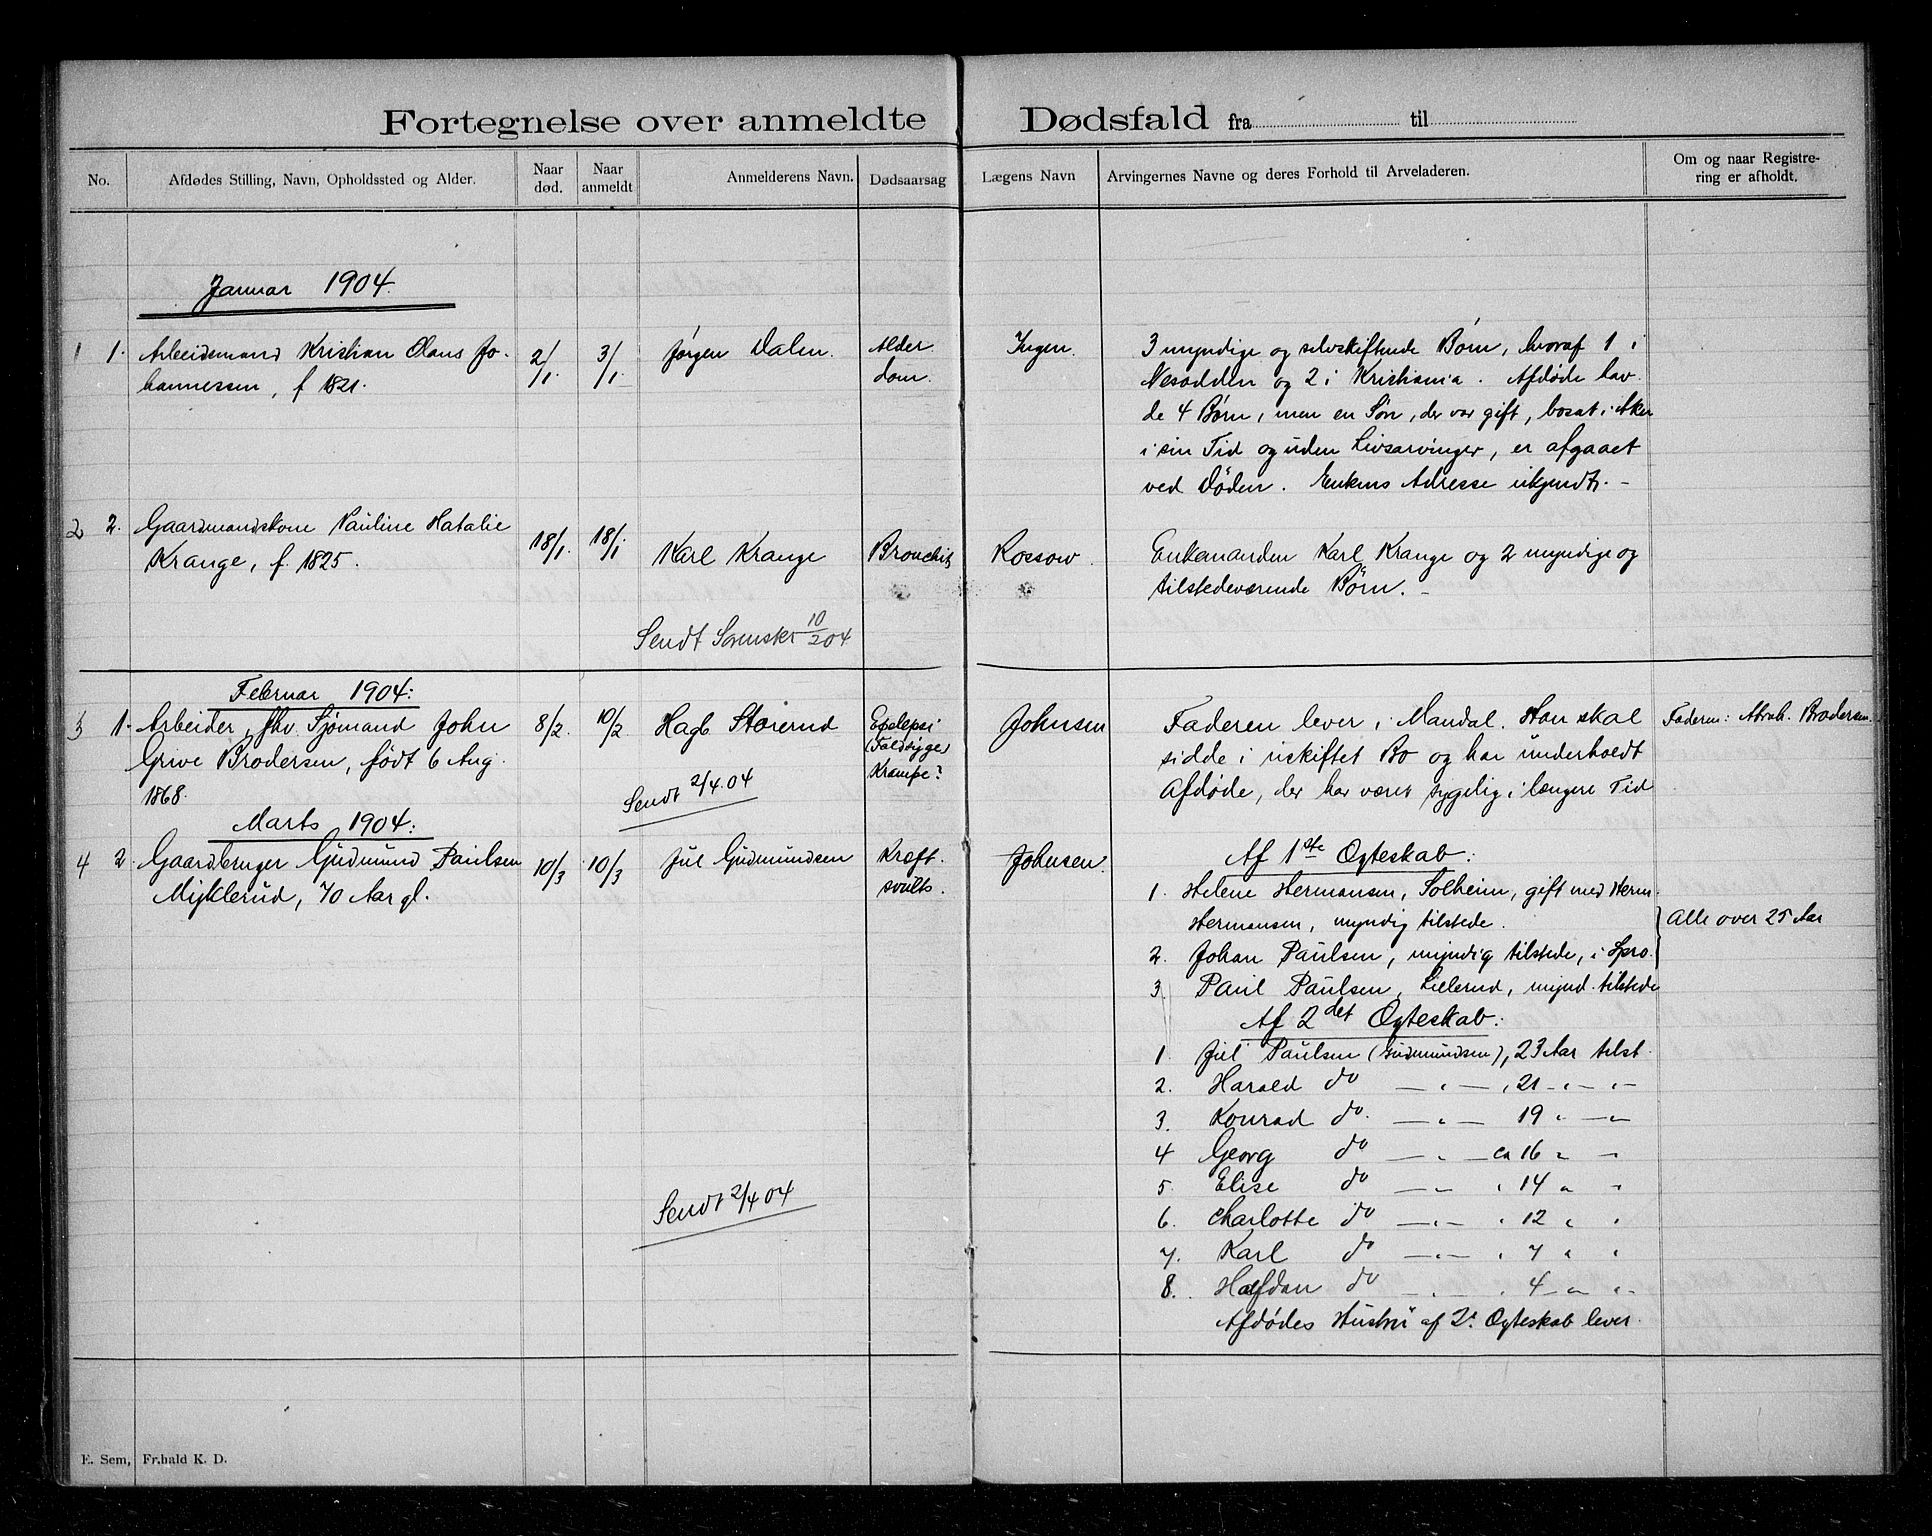 Fortegnelse over anmeldte Dødsfald fra til
No. Afdødes Stilling, Navn, Opholdssted og Alder. Naar død. Naar anmeldt Anmelderens Navn. Dødsaarsag Lægens Navn Arvingernes Navne og deres Forhold til Arveladeren. Om og naar Registrering er afholdt.
Januar 1904.
1 1. Arbeidsmand Kristian Olaus Jo- 2/1 3/1 Jørgen Dalen. Alder Ingen. 3 myndige og selvskiftende Børn, hvoraf 1 i
hannessen, f 1821. dom. Nesodden og 2 i Kristiania. Afdøde hav-
de 4 Børn, men en Søn, der var gift, bosat i Aker
i sin Tid og uden Livsarvinger, er afgaaet
ved Døden. Enkens Adresse ukjendt. –
2 2. Gaardmandskone Pauline Natalie 18/1. 18/1 Karl Krange Bronchit Rossow. Enkemanden Karl Krange og 2 myndige og
Krange, f. 1825. tilstedeværende Børn. –
Sendt Sorenskr 10/2 04
Februar 1904:
3 1. Arbeider, fhv. Sjømand John 8/2. 10/2 Hagb. Storerud Epelepsi Johnsen Faderen lever i Mandal. Han skal Faderen: Abrah. Brodersen.
Grive Brodersen, født 6 Aug. (Faldsyge) sidde i uskiftet Bo og har underholdt
1868. Krampe? Afdøde, der har været sygelig i længere Tid
Sendt 2/4.04
Marts 1904:
4 2. Gaardbruger Gudmund Paulsen 10/3 10/3 Jul Gudmundsen Kræft- Johnsen. Af 1ste Ægteskab:
Myklerud, 70 Aar gl. svulst. 1. Helene Hermansen, Solheim, gift med Herm.
Hermansen, myndig tilstede. Alle over 25 Aar
2. Johan Paulsen, myndig tilstede, i Spro.
3. Paul Paulsen, Lillerud, mynd. tilstede
Af 2det Ægteskab:
1. Jul Paulsen (Gudmundsen), 23 Aar tilst.
2. Harald do — " — , 21 – " – " –
3. Konrad do. — " — 19 " – "
4 Georg do — " — ca 16 " "
5. Elise do — " " 14 " "
6. Charlotte do — " — " 12 " "
7. Karl do — " — " 7 " "
8. Halfdan do " 4 – " " –
Afdødes Hustru af 2. Ægteskab lever.
Sendt 2/4 04
E. Sem, Fr.hald K. D.